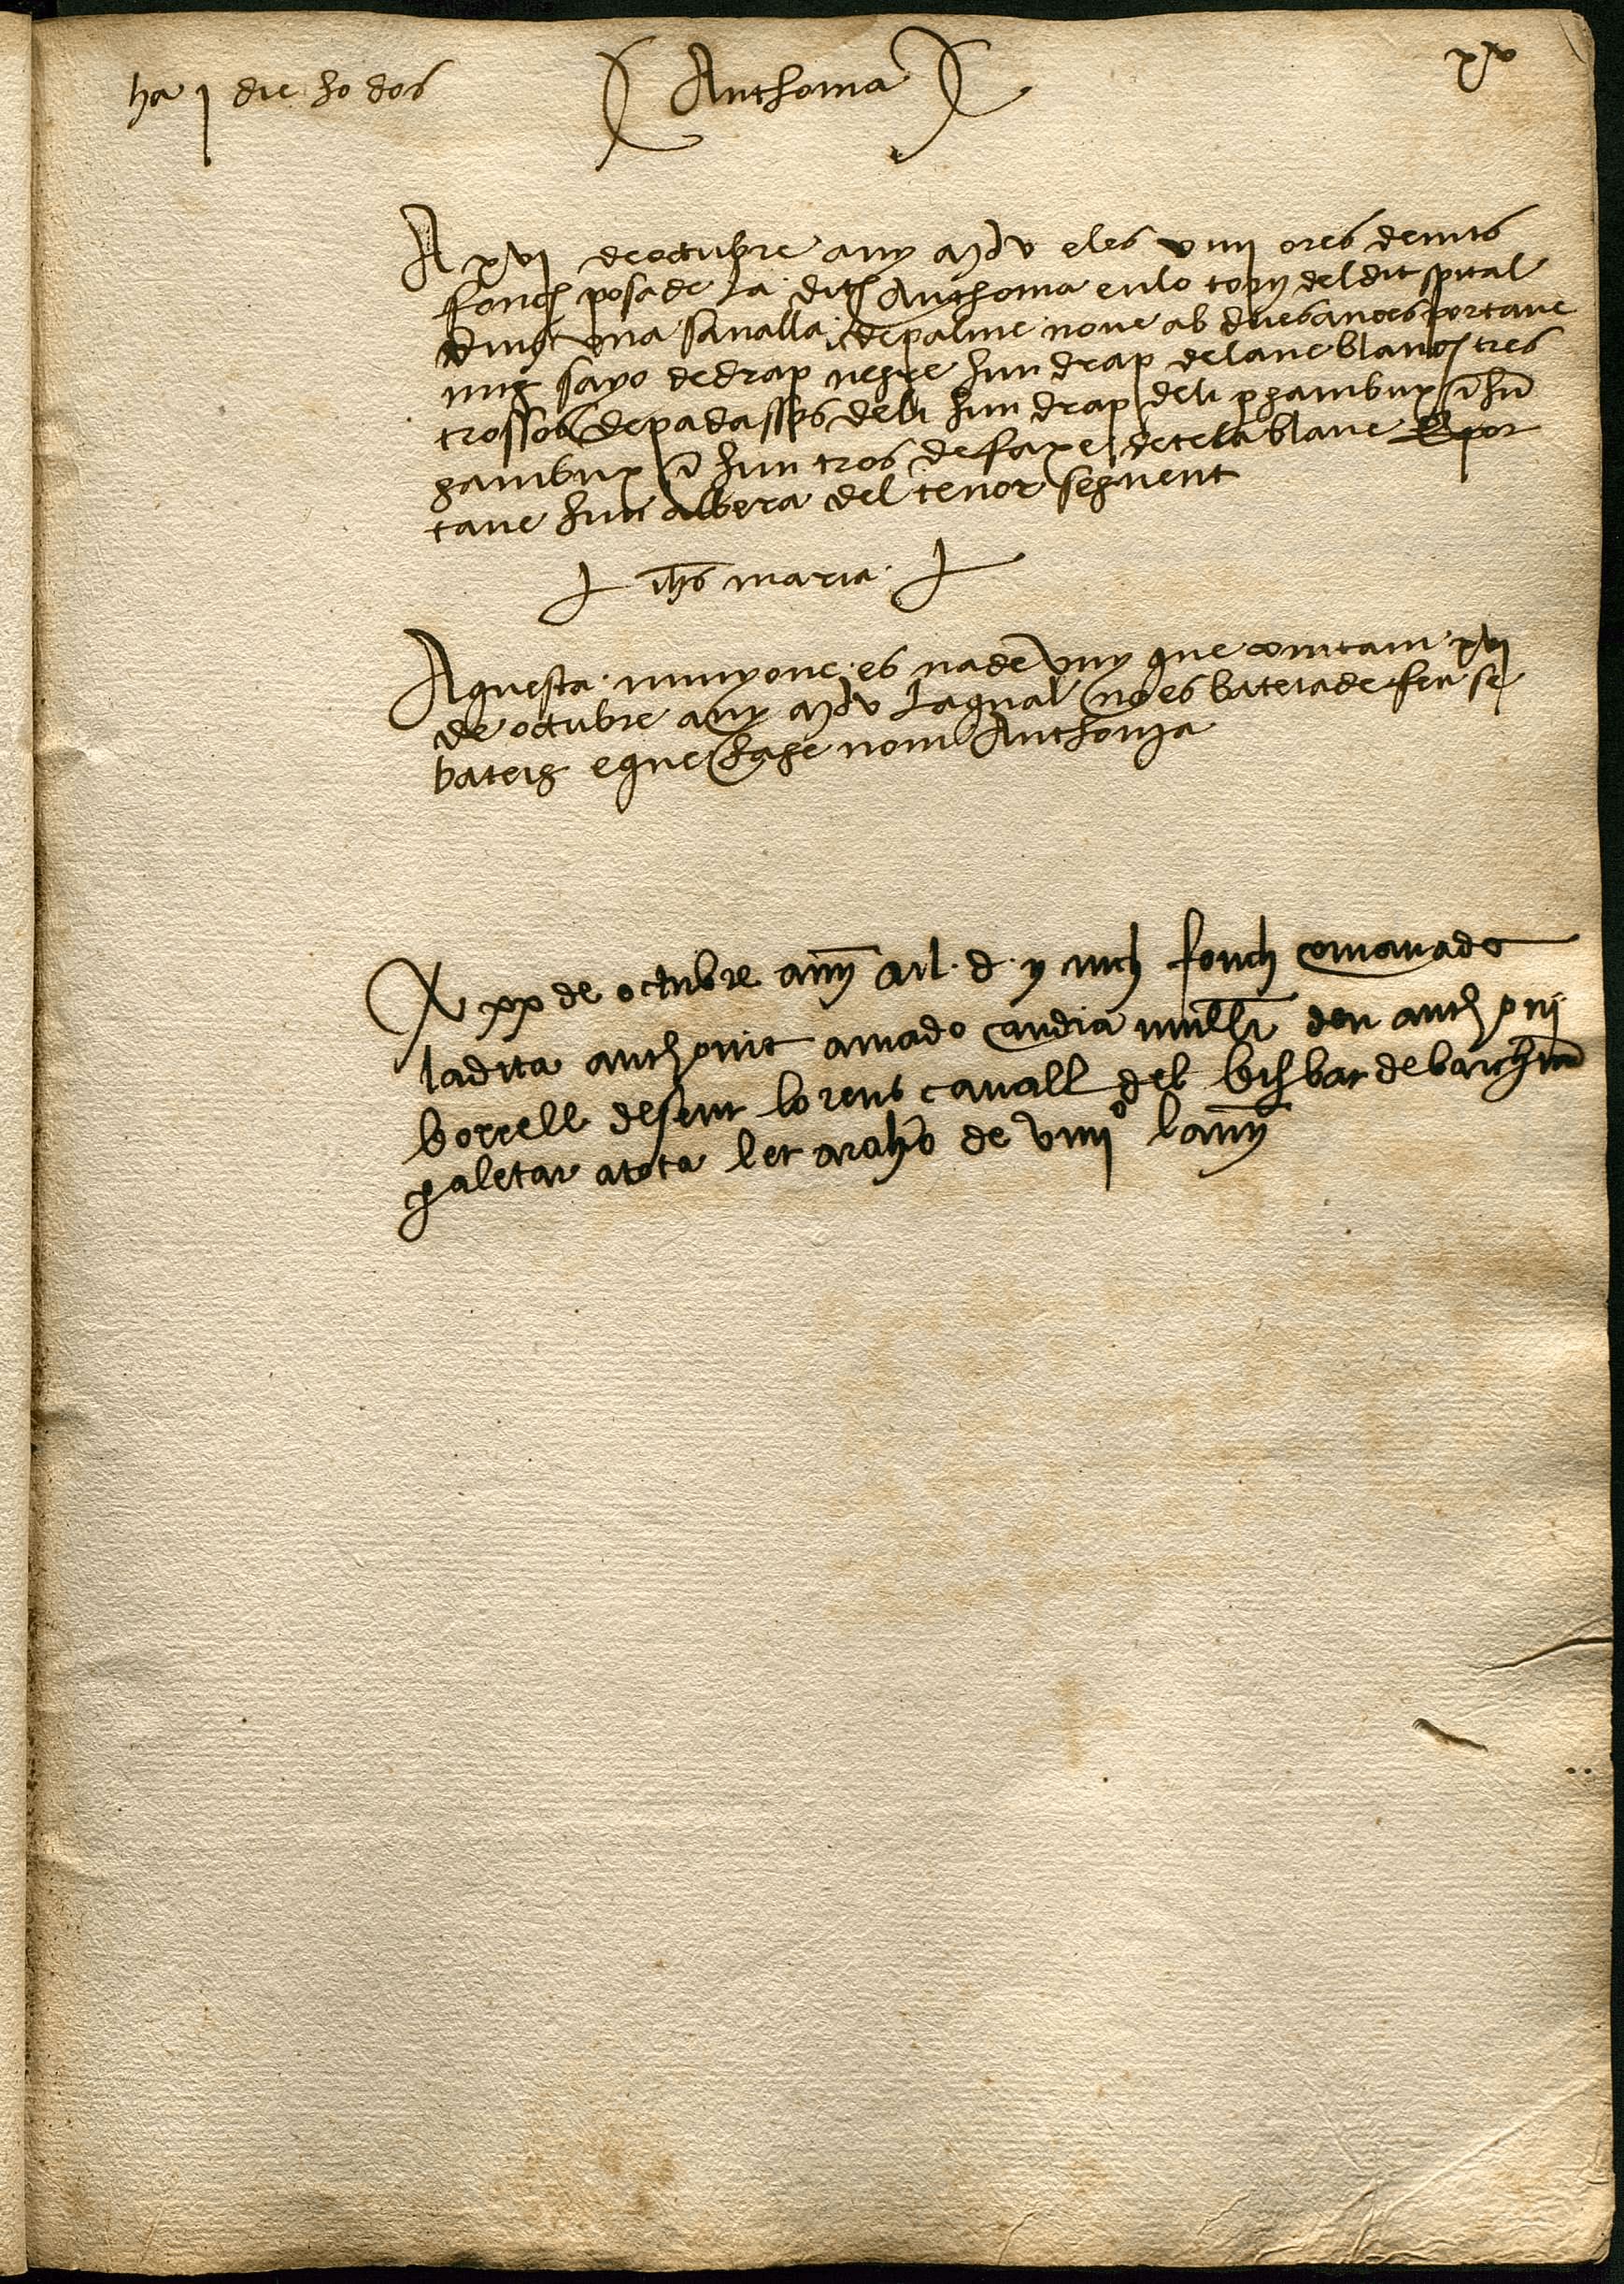 ha j die ho dos
Anthonia
xv
A xvj de octubre any mdv e les viiij ores de nits
fonch posade la dita Anthonia en lo torn del dit spital
dins una sanalla de palme nove ab dues anses portave
mig sayo de drap negre hun drap de lane blanch tres
trossos de padassos de li hun drap de li p gambux e hun
gambux e hun tros de faxe de tela blave E por
tave hun albera del tenor seguent
ihs maria
Aquesta minyone es nade vuy que comtam xvj
de octubre any mdv la qual no es bateiade fer se
bateig e que hage nom Anthonia
A xx de octubre any mil d y sinch fonch comanada
la dita anthonia a mado muller den anthoni
borrell de sent lorens cavall del bisbat de barchna
p aletar a tota let a raho de viiij l lany